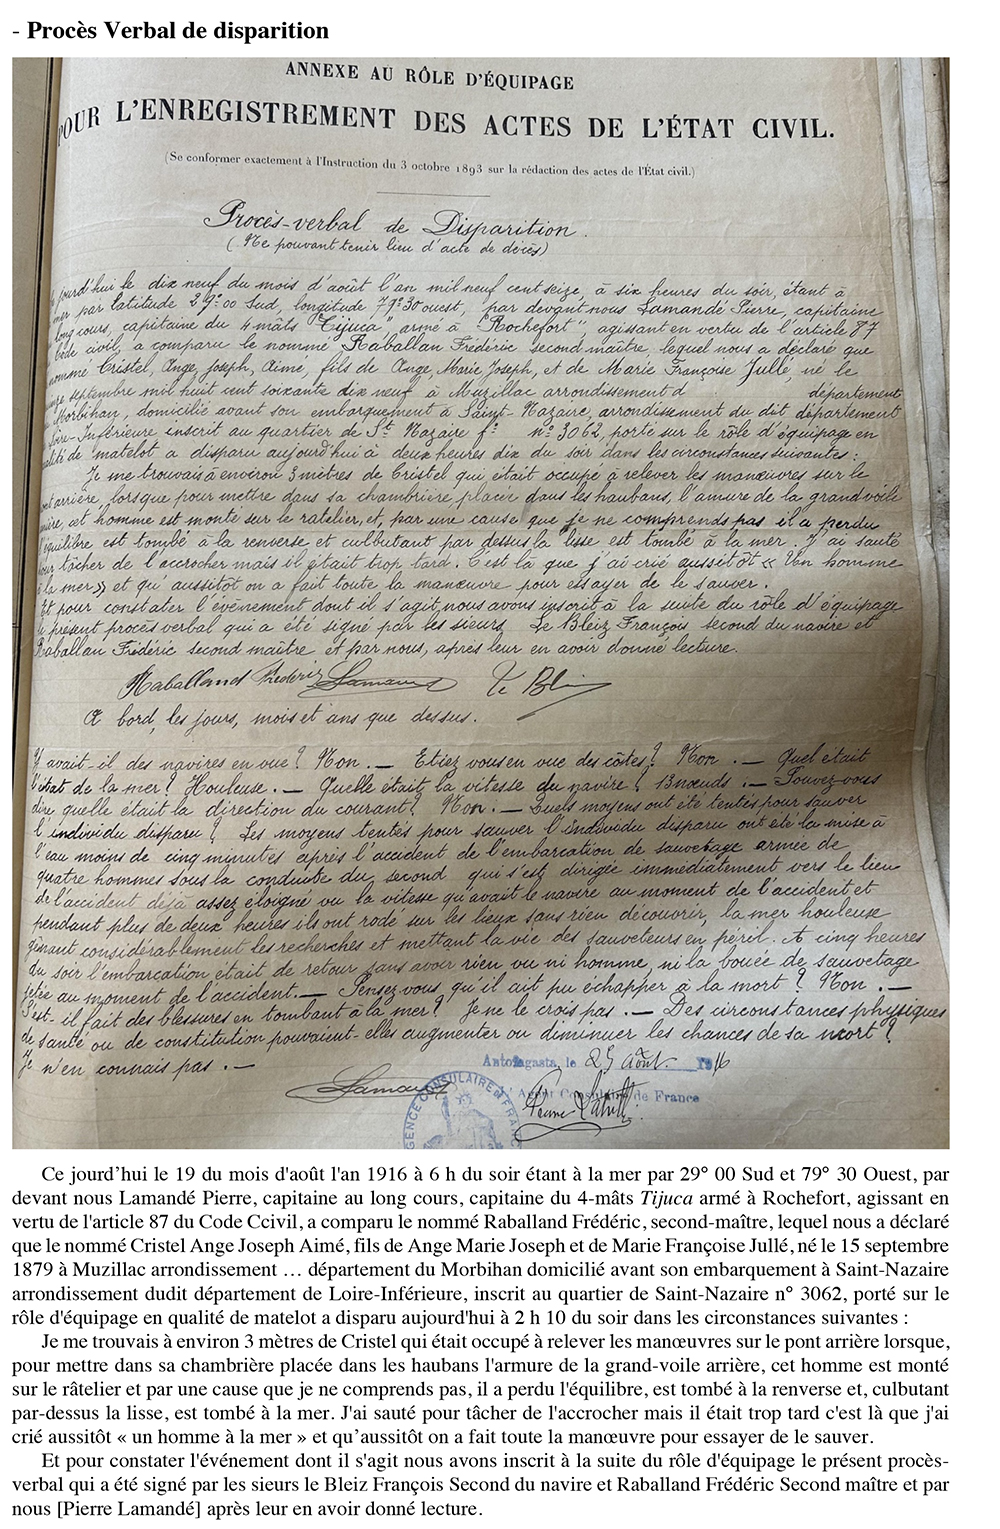 - Procès Verbal de disparition
ANNEXE AU RÔLE D'ÉQUIPAGE
POUR L'ENREGISTREMENT DES ACTES DE L'ÉTAT CIVIL.
(Se conformer exactement à l'Instruction du 3 octobre 1893 sur la rédaction des actes de l'État civil.)
Procès-verbal de Disparition.
(Ne pouvant tenir lieu d'acte de décès)
jourd'hui le dix neuf du mois d'août l'an mil neuf cent seize, à six heures du soir, étant à
mer par latitude 29°00 Sud, longitude 79°30 ouest, par devant nous Lamandé Pierre, capitaine
long cours, capitaine du 4 mâts "Tijuca", armé à "Rochefort", agissant en vertu de l'article 87
Code civil, a comparu le nommé Raballan Frédéric second maître, lequel nous a déclaré que
nommé Cristel, Ange, Joseph, Aimé, fils de Ange, Marie, Joseph, et de Marie Françoise Jullé, né le
septembre mil huit cent soixante dix neuf à Muzillac arrondissement d département
Morbihan, domicilié avant son embarquement à Saint-Nazaire, arrondissement du dit département
Loire-Inférieure inscrit au quartier de St Nazaire f° n° 3062, porté sur le rôle d'équipage en
qualité de matelot a disparu aujourd'hui à deux heures dix du soir dans les circonstances suivantes :
Je me trouvais à environ 3 mètres de Cristel qui était occupé à relever les manœuvres sur le
pont arrière, lorsque pour mettre dans sa chambrière placér dans les haubans, l'amure de la grand voile
arrière, cet homme est monté sur le ratelier, et, par une cause que je ne comprends pas il a perdu
l'équilibre est tombé à la renverse et culbutant par dessus la lisse est tombé à la mer. J'ai sauté
pour tâcher de l'accrocher mais il était trop tard. C'est là que j'ai crié aussitôt « Un homme
à la mer » et qu'aussitôt on a fait toute la manœuvre pour essayer de le sauver.
Et pour constater l'événement dont il s'agit, nous avons inscrit à la suite du rôle d'équipage
le présent procès verbal qui a été signé par les sieurs Le Bleiz François second du navire et
Raballan Frédéric second maître et par nous, après leur en avoir donné lecture.
Raballand Frédéric Lamandé Le Bleiz
A bord, les jours, mois et ans que dessus.
Y avait-il des navires en vue ? Non. — Etiez vous en vue des côtes ? Non. — Quel était
l'état de la mer ? Houleuse. — Quelle était la vitesse du navire ? 13 nœuds. — Pouvez-vous
dire quelle était la direction du courant ? Non. — Quels moyens ont été tentés pour sauver
l'individu disparu ? Les moyens tentés pour sauver l'individu disparu ont été la mise à
l'eau moins de cinq minutes après l'accident de l'embarcation de sauvetage armée de
quatre hommes sous la conduite du second qui s'est dirigée immédiatement vers le lieu
de l'accident déjà assez éloigné vu la vitesse qu'avait le navire au moment de l'accident et
pendant plus de deux heures ils ont rodé sur les lieux sans rien découvrir, la mer houleuse
gênant considérablement les recherches et mettant la vie des sauveteurs en péril. A cinq heures
du soir l'embarcation était de retour sans avoir rien vu ni homme, ni la bouée de sauvetage
jetée au moment de l'accident. — Pensez-vous qu'il ait pu échapper à la mort ? Non. —
S'est-il fait des blessures en tombant à la mer ? Je ne le crois pas. — Des circonstances physiques
de santé ou de constitution pouvaient-elles augmenter ou diminuer les chances de sa mort ?
Je n'en connais pas. —
Antofagasta, le 25 Août 1916
Lamandé
L'Agent Consulaire de France
AGENCE CONSULAIRE DE FRANCE
Ce jourd’hui le 19 du mois d'août l'an 1916 à 6 h du soir étant à la mer par 29° 00 Sud et 79° 30 Ouest, par
devant nous Lamandé Pierre, capitaine au long cours, capitaine du 4-mâts Tijuca armé à Rochefort, agissant en
vertu de l'article 87 du Code Ccivil, a comparu le nommé Raballand Frédéric, second-maître, lequel nous a déclaré
que le nommé Cristel Ange Joseph Aimé, fils de Ange Marie Joseph et de Marie Françoise Jullé, né le 15 septembre
1879 à Muzillac arrondissement … département du Morbihan domicilié avant son embarquement à Saint-Nazaire
arrondissement dudit département de Loire-Inférieure, inscrit au quartier de Saint-Nazaire n° 3062, porté sur le
rôle d'équipage en qualité de matelot a disparu aujourd'hui à 2 h 10 du soir dans les circonstances suivantes :
Je me trouvais à environ 3 mètres de Cristel qui était occupé à relever les manœuvres sur le pont arrière lorsque,
pour mettre dans sa chambrière placée dans les haubans l'armure de la grand-voile arrière, cet homme est monté
sur le râtelier et par une cause que je ne comprends pas, il a perdu l'équilibre, est tombé à la renverse et, culbutant
par-dessus la lisse, est tombé à la mer. J'ai sauté pour tâcher de l'accrocher mais il était trop tard c'est là que j'ai
crié aussitôt « un homme à la mer » et qu’aussitôt on a fait toute la manœuvre pour essayer de le sauver.
Et pour constater l'événement dont il s'agit nous avons inscrit à la suite du rôle d'équipage le présent procès-
verbal qui a été signé par les sieurs le Bleiz François Second du navire et Raballand Frédéric Second maître et par
nous [Pierre Lamandé] après leur en avoir donné lecture.